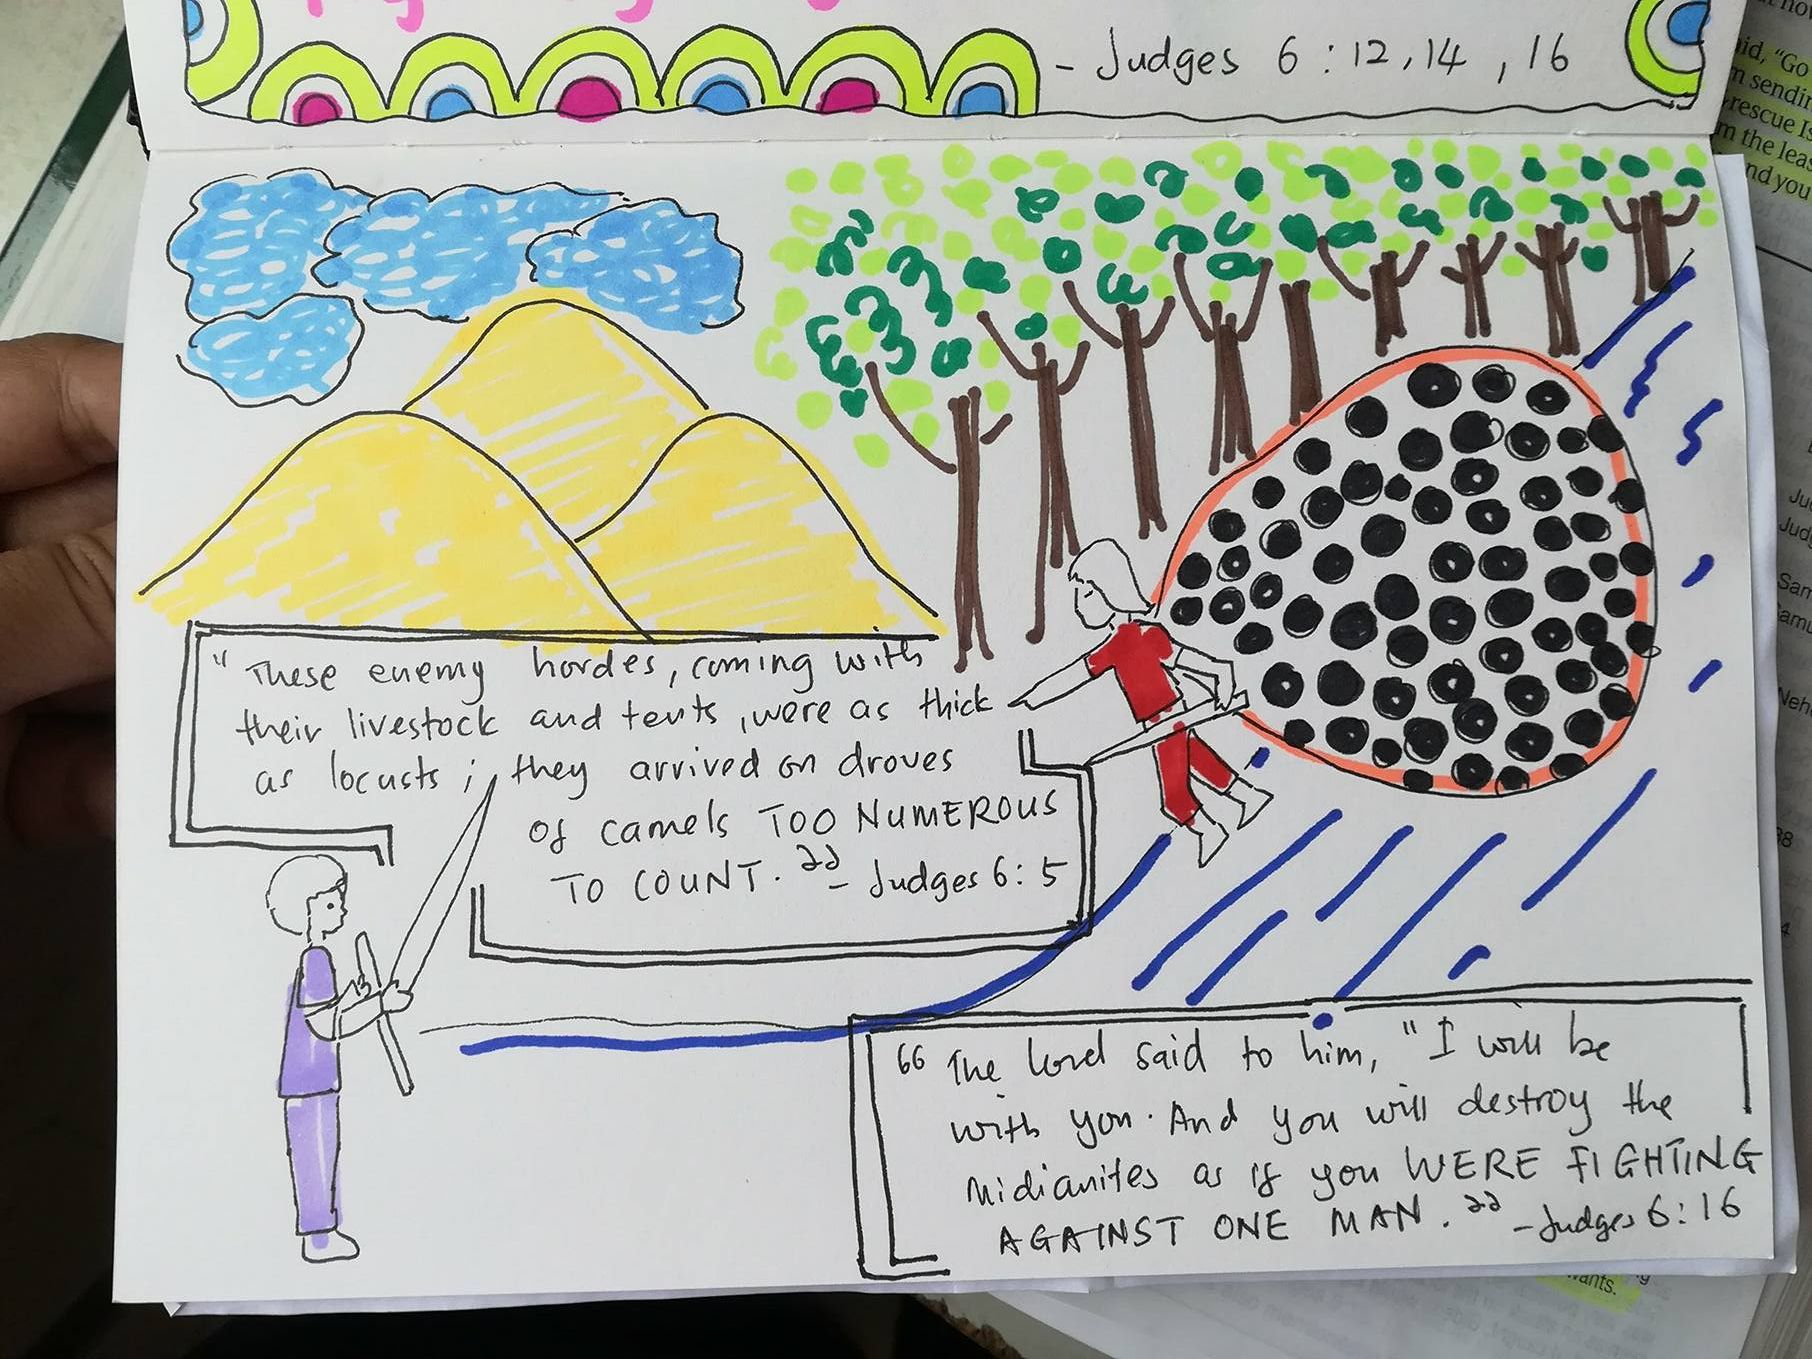 - Judges 6:12,14,16
"These enemy hordes, coming with
their livestock and tents, were as thick
as locusts; they arrived on droves
of camels TOO NUMEROUS
TO COUNT." - Judges 6:5
"The Lord said to him, "I will be
with you. And you will destroy the
Midianites as if you WERE FIGHTING
AGAINST ONE MAN." - Judges 6:16
"Go
sendin
rescue Is
m the leas
nd you
wants.